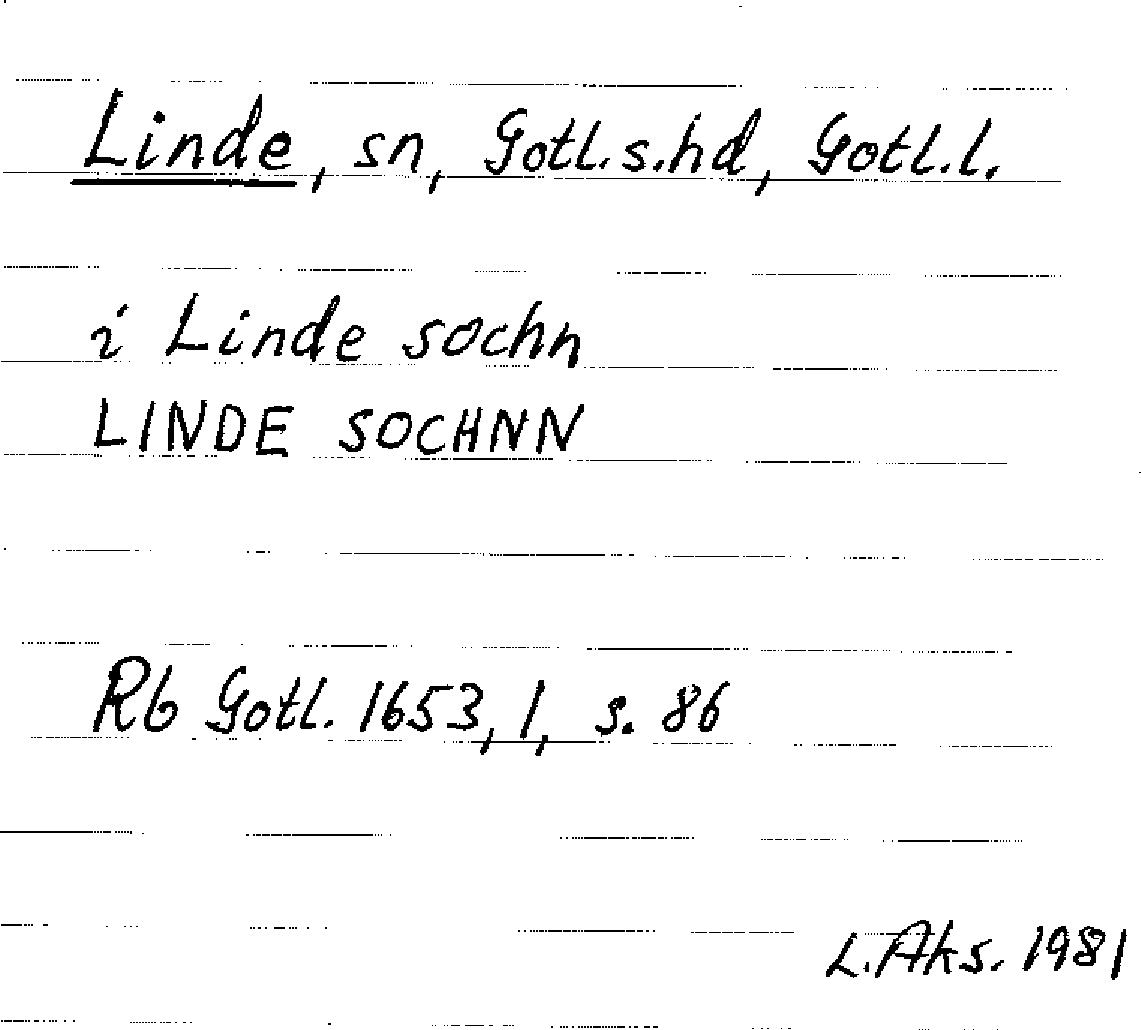 Linde, sn, Gotl.s.hd, Gotl.l.
i Linde sochn
LINDE SOCHNN
Rb Gotl. 1653, 1, s. 86
L.Aks. 1981